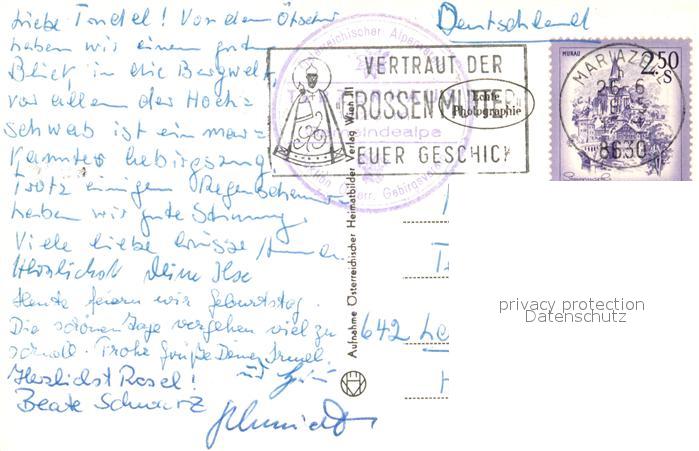 Liebe Trudel! Von dem Ötscher
haben wir einen guten
Blick in die Bergwelt,
vor allem der Hoch=
schwab ist ein mar=
kanter Gebirgszug
Trotz einigen Regenschauern
haben wir gute Stimmung.
Viele liebe Grüsse
Herzlichst Deine Ilse
Heute feiern wir Geburtstag.
Die schönen Tage vergehen viel zu
schnell. Frohe Grüße Deine Irmel.
Herzlichst Rosel! und
Beate Schwarz
Schmidt
Deutschland
VERTRAUT DER
GROSSEN MUTTER
EUER GESCHICK
Echte
Photographie
Österreichischer Alpenverein
Gemeindealpe
Aufnahme Österreichischer Heimatbilder Verlag Wien III
MURAU
2.50
S
MARIAZELL
26.6
8630
642 Le
privacy protection
Datenschutz